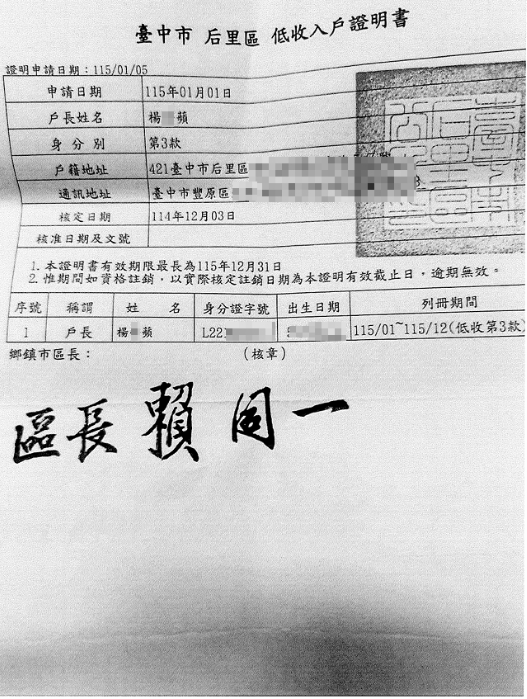 臺中市 后里區 低收入戶證明書
證明申請日期：115/01/05
申請日期 115年01月01日
戶長姓名 楊 蘋
身分別 第3款
戶籍地址 421臺中市后里區
通訊地址 臺中市豐原區
核定日期 114年12月03日
核准日期及文號
1. 本證明書有效期限最長為115年12月31日
2. 惟期間如資格註銷，以實際核定註銷日期為本證明有效截止日，逾期無效。
序號 稱謂 姓 名 身分證字號 出生日期 列冊期間
1 戶長 楊 蘋 L22 115/01~115/12(低收第3款)
鄉鎮市區長： (核章)
區長 賴同一